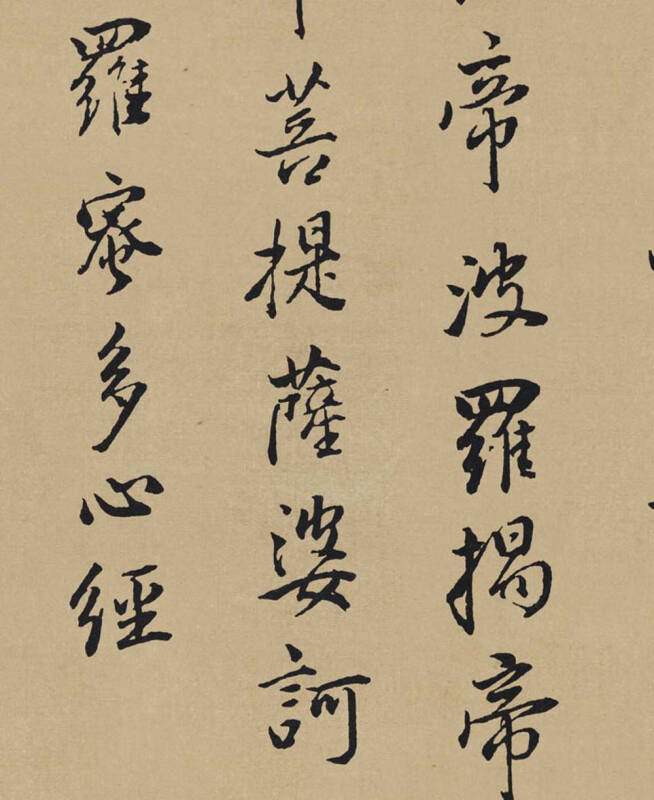 帝波羅揭帝
菩提薩婆訶
羅蜜多心經